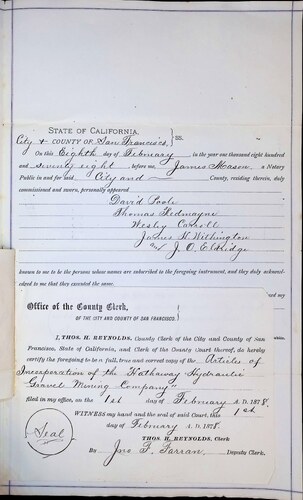 STATE OF CALIFORNIA,
City & COUNTY OF San Francisco } ss.
On this Eighth day of February in the year one thousand eight hundred
and seventy eight before me, James Mason, a Notary
Public in and for said City and County, residing therein, duly
commissioned and sworn, personally appeared
David Poole
Thomas Redmayne
Wesley Carroll
James H. Withington
and J. O. Eldridge
known to me to be the persons whose names are subscribed to the foregoing instrument, and they duly acknowl-
edged to me that they executed the same.
Office of the County Clerk,
OF THE CITY AND COUNTY OF SAN FRANCISCO.
I, THOS. H. REYNOLDS, County Clerk of the City and County of San
Francisco, State of California, and Clerk of the County Court thereof, do hereby
certify the foregoing to be a full, true and correct copy of the Articles of
Incorporation of the Hathaway Hydraulic
Gravel Mining Company
filed in my office, on the 1st day of February A. D. 1878.
WITNESS my hand and the seal of said Court, this 1st
day of February A. D. 1878.
Seal
THOS. H. REYNOLDS, Clerk
By Jno. F. Farran, Deputy Clerk.